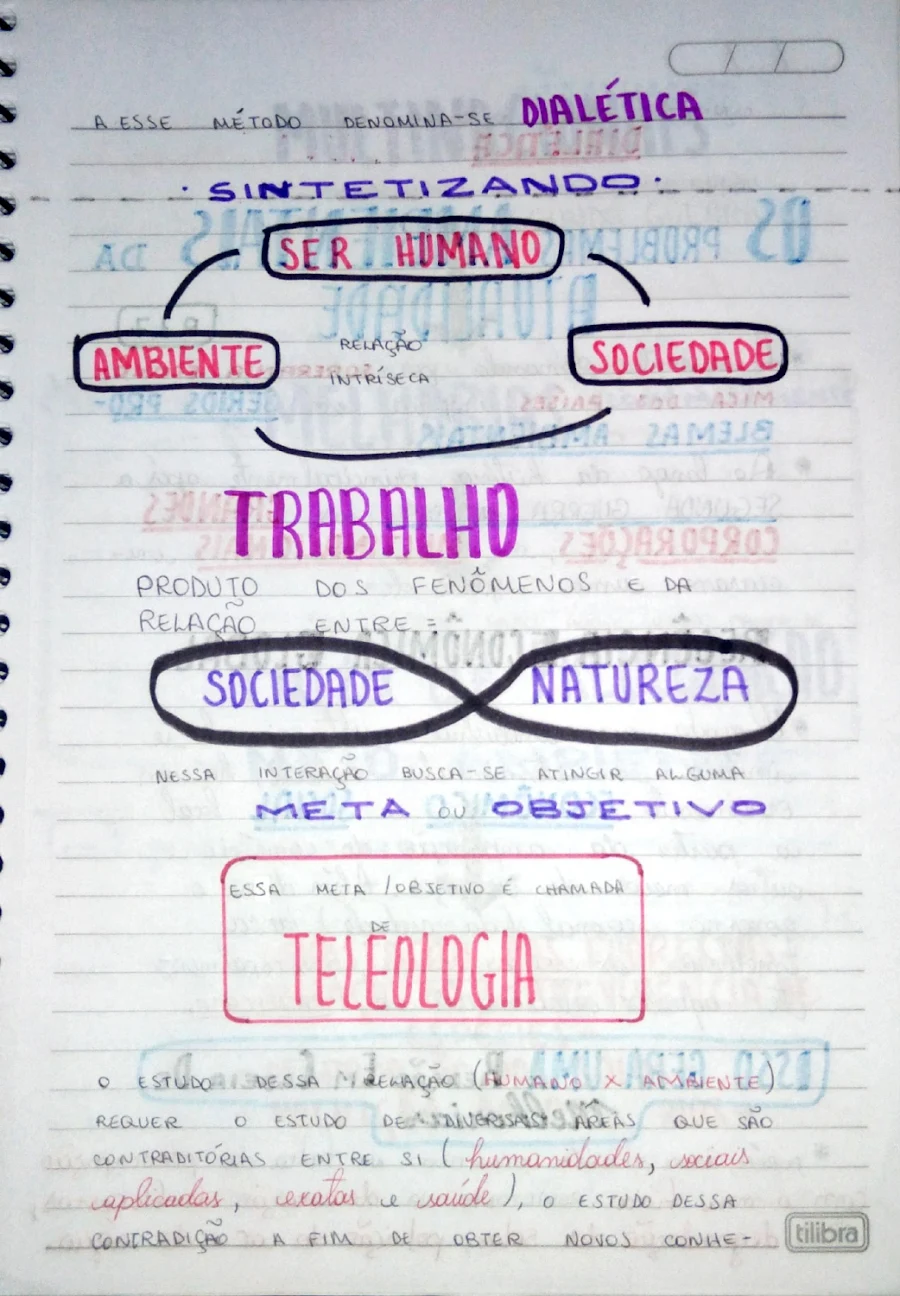 A ESSE MÉTODO DENOMINA-SE DIALÉTICA
· SINTETIZANDO ·
SER HUMANO
AMBIENTE
RELAÇÃO
INTRÍSECA
SOCIEDADE
TRABALHO
PRODUTO DOS FENÔMENOS E DA
RELAÇÃO ENTRE =
SOCIEDADE NATUREZA
NESSA INTERAÇÃO BUSCA-SE ATINGIR ALGUMA
META OU OBJETIVO
ESSA META / OBJETIVO É CHAMADA
DE
TELEOLOGIA
O ESTUDO DESSA RELAÇÃO (HUMANO X AMBIENTE)
REQUER O ESTUDO DE DIVERSAS ÁREAS QUE SÃO
CONTRADITÓRIAS ENTRE SI (humanidades, sociais
aplicadas, exatas e saúde), O ESTUDO DESSA
CONTRADIÇÃO A FIM DE OBTER NOVOS CONHE-
tilibra